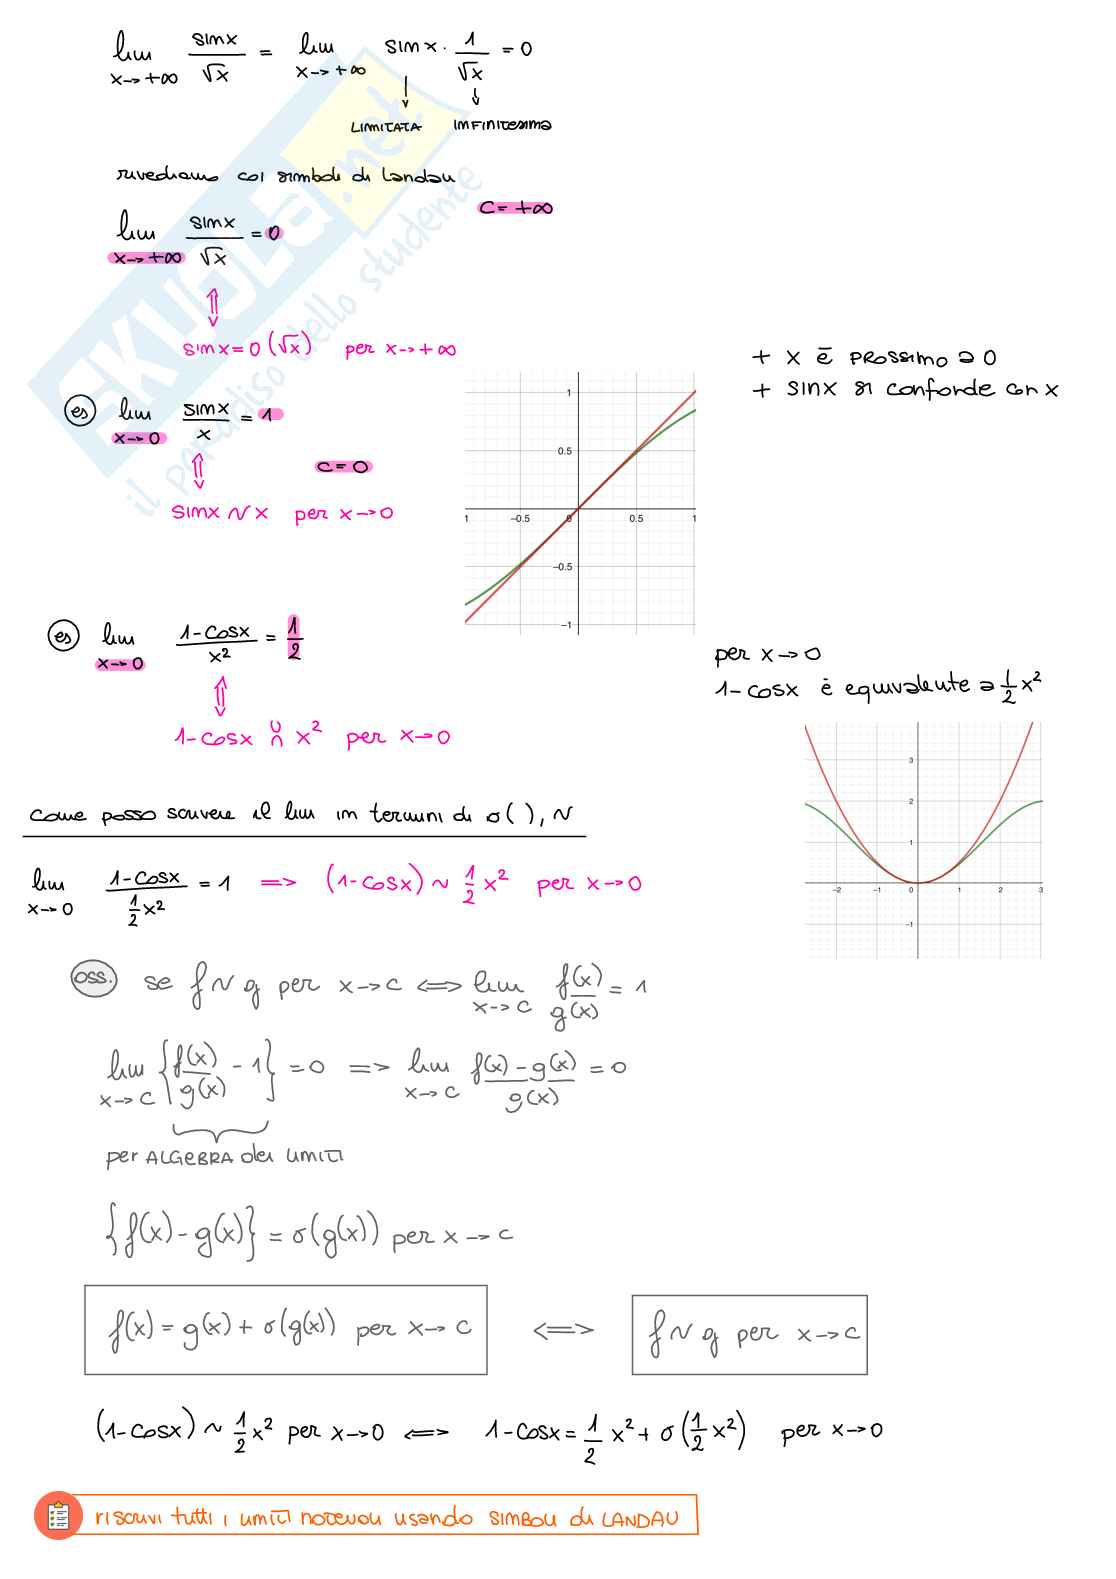 lim x→+∞ sinx/√x = lim x→+∞ sinx · 1/√x = 0
LIMITATA INFINITESIMA
rivediamo coi simboli di Landau
c = +∞
lim x→+∞ sinx/√x = 0
⇕
sinx = o(√x) per x→+∞
+ x è PROSSIMO a 0
+ sinx si confonde con x
es lim x→0 sinx/x = 1
c = 0
⇕
sinx ~ x per x→0
1
0.5
1 −0.5 0 0.5 1
−0.5
−1
es lim x→0 1-cosx/x² = 1/2
⇕
1-cosx ≍ x² per x→0
per x→0
1-cosx è equivalente a 1/2 x²
3
2
1
−2 −1 0 1 2 3
−1
come posso scrivere il lim in termini di σ( ), ~
lim x→0 1-cosx / 1/2 x² = 1 => (1-cosx) ~ 1/2 x² per x→0
oss. se f ~ g per x→c <=> lim x→c f(x)/g(x) = 1
lim x→c {f(x)/g(x) - 1} = 0 => lim x→c f(x)-g(x)/g(x) = 0
per ALGEBRA dei LIMITI
{f(x)-g(x)} = σ(g(x)) per x→c
f(x) = g(x) + σ(g(x)) per x→c <=> f ~ g per x→c
(1-cosx) ~ 1/2 x² per x→0 <=> 1-cosx = 1/2 x² + σ(1/2 x²) per x→0
riscrivi tutti i limiti notevoli usando SIMBOLI di LANDAU
SKUOLA.net
il paradiso dello studente